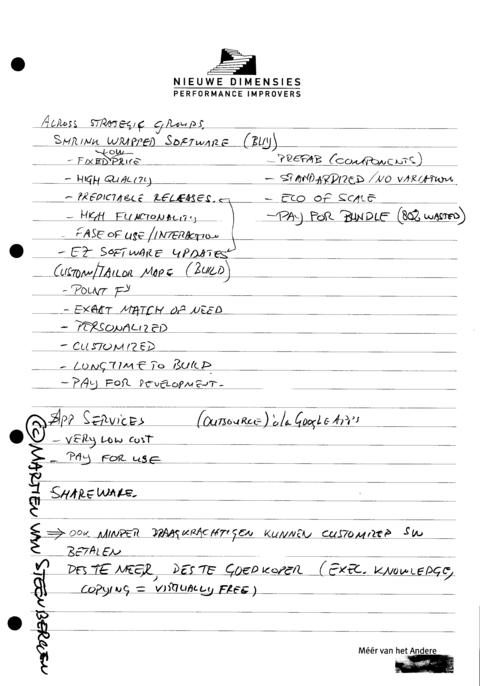 NIEUWE DIMENSIES
PERFORMANCE IMPROVERS
ACROSS STRATEGIC GROUPS.
SHRINK WRAPPED SOFTWARE (BUY)
LOW
- FIXED PRICE - PREFAB (COMPONENTS)
- HIGH QUALITY - STANDARDIZED / NO VARIATION
- PREDICTABLE RELEASES. - ECO OF SCALE
- HIGH FUNCIONALITY - PAY FOR BUNDLE (80% WASTED)
EASE OF USE / INTERACTION
- EZ SOFTWARE UPDATES
CUSTOM/TAILOR MADE (BUILD)
- POINT
- EXACT MATCH OF NEED
- PERSONALIZED
- CUSTOMIZED
- LONG TIME TO BUILD
- PAY FOR DEVELOPMENT -
APP SERVICES (OUTSOURCE) à la GOOGLE APP'S
- VERY LOW COST
- PAY FOR USE
SHAREWARE.
⇒ OOK MINDER DRAAGKRACHTIGEN KUNNEN CUSTOMIZED SW
BETALEN
DES TE MEER, DES TE GOEDKOPER (EXEC. KNOWLEDGE,
COPYING = VIRTUALLY FREE)
(C) MARTIEN VAN STEENBERGEN
Méér van het Andere